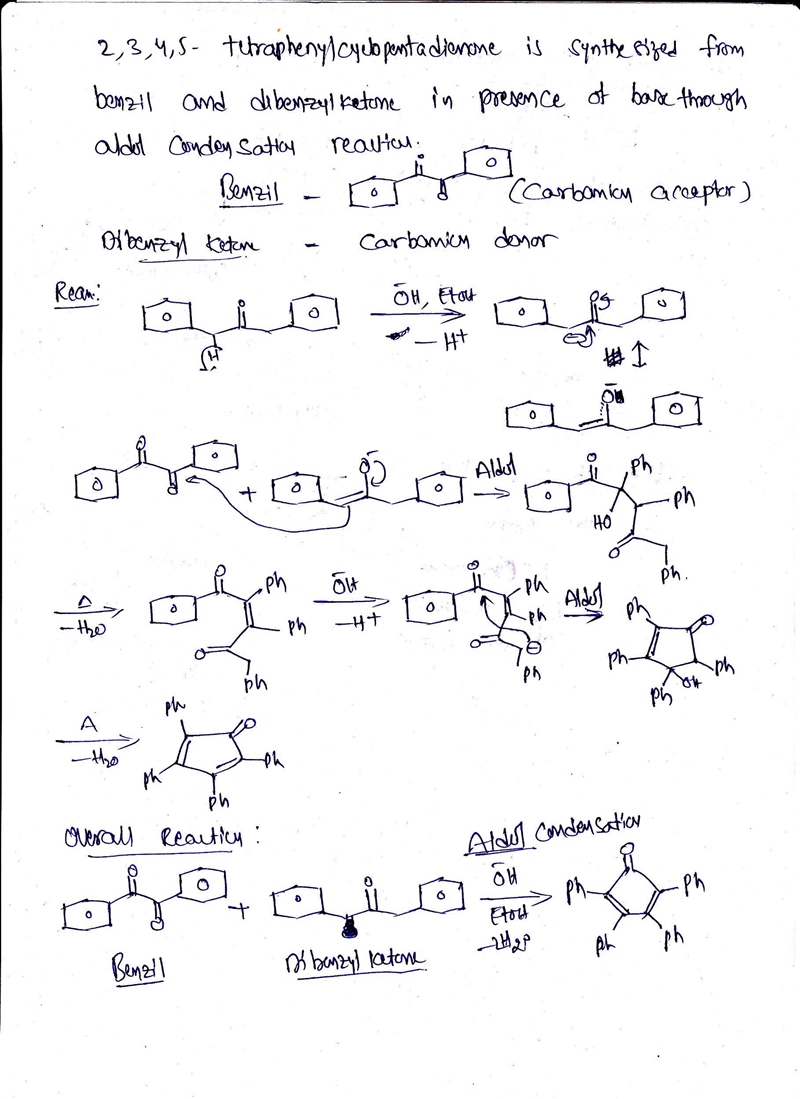 2,3,4,5- tetraphenylcyclopentadienone is synthesized from
benzil and dibenzylketone in presence of base through
aldol condensation reaction.
Benzil - O O O O (Carbanion acceptor)
Dibenzyl ketone - Carbanion donor
Rean:
O O O H ŌH, EtOH - H+ O O O ⊖
Ō O O
O O O O + O Ō O Aldol O O Ph HO Ph O Ph.
Δ -H2O O O Ph Ph O Ph ŌH -H+ O O Ph Ph O ⊖ Ph Aldol Ph O Ph Ph OH Ph
Δ -H2O Ph O Ph Ph Ph
Overall Reaction:
Aldol Condensation
O O O O + O O O ŌH EtOH -2H2O O Ph Ph Ph Ph
Benzil Dibenzyl ketone